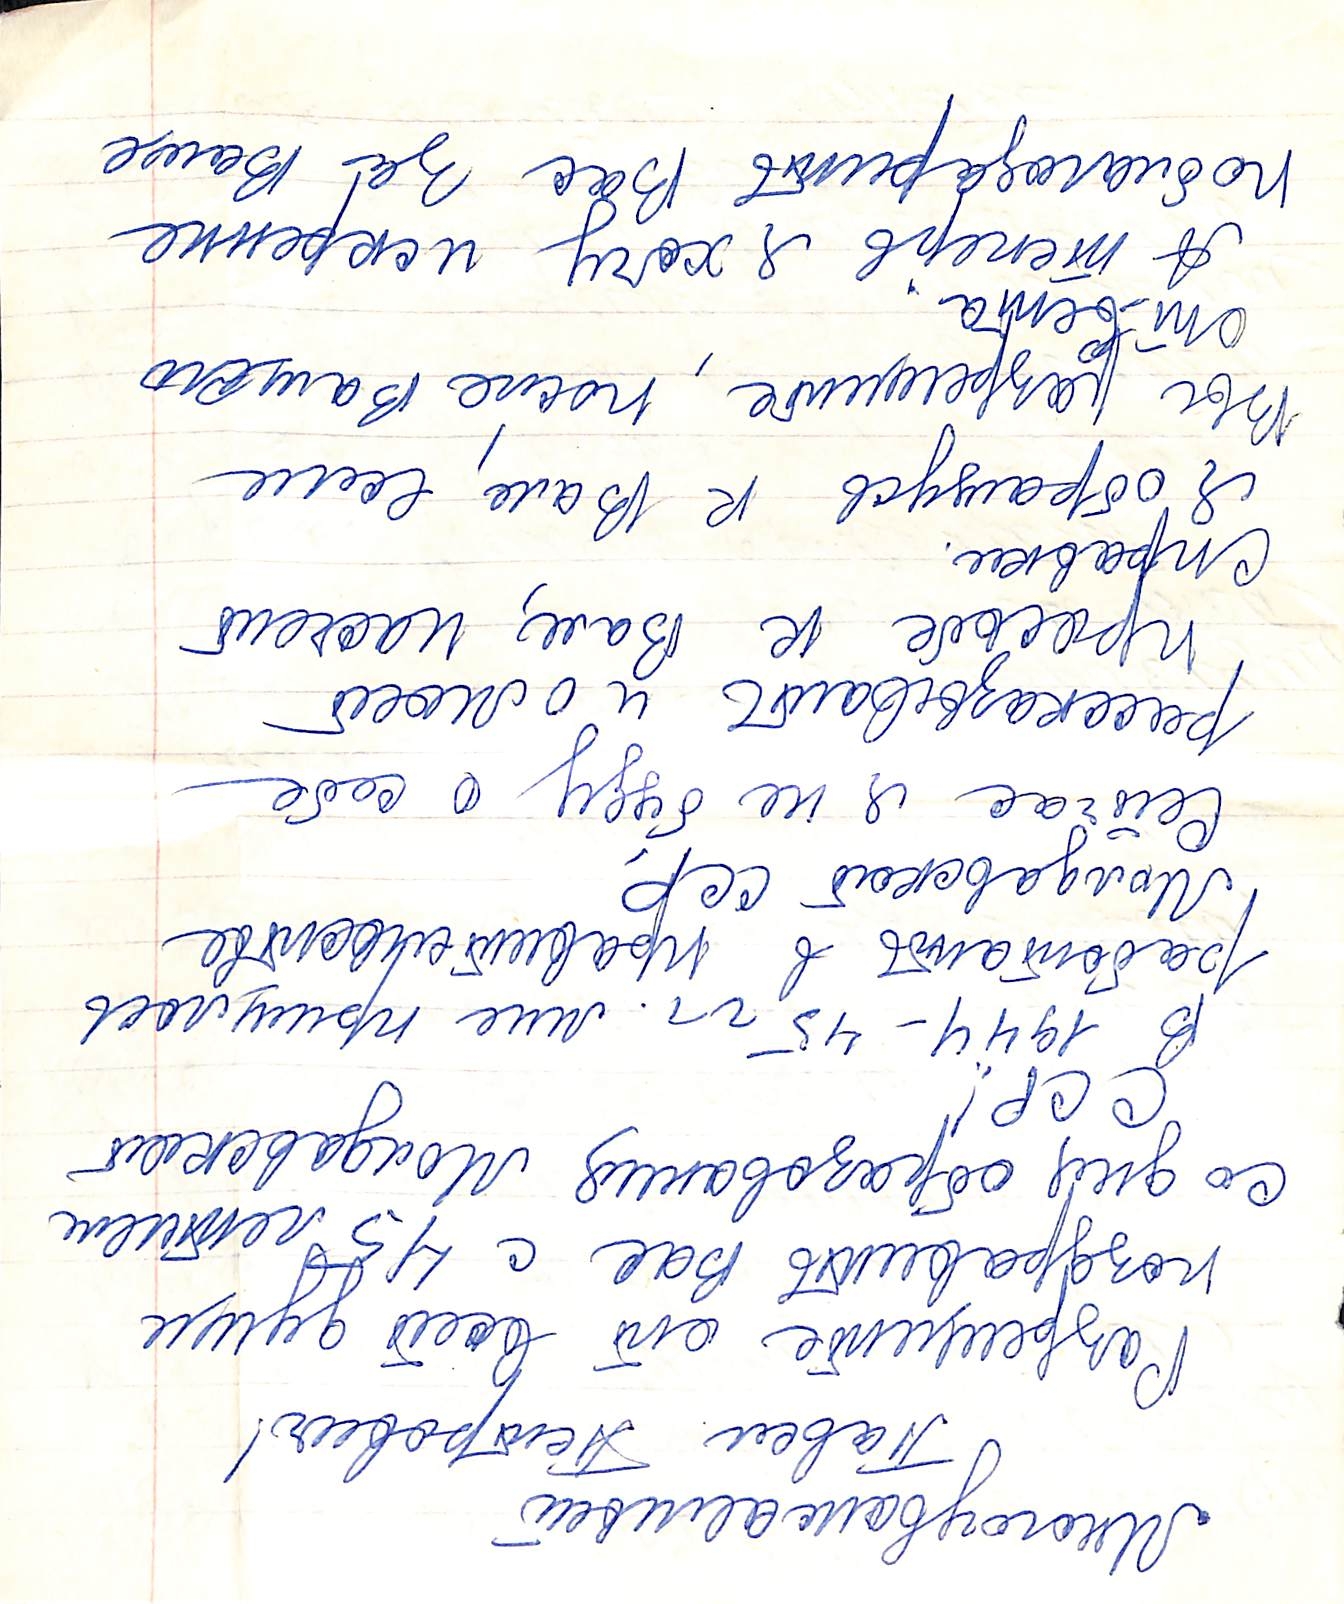 Многоуважаемый
Павел Петрович!
Разрешите от всей души
поздравить Вас с 45 летием
со дня образования Молдавской
ССР!
В 1944-45 гг. мне пришлось
работать в правительстве
Молдавской ССР,
Сейчас я не буду о себе
рассказывать и о моей
просьбе к Вам, насчет
справки.
Я обращусь к Вам, если
Вы разрешите, после Вашего
ответа.
А теперь я хочу искренне
поблагодарить Вас за Ваше